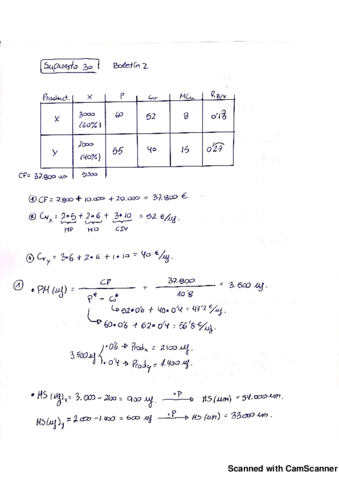 Supuesto 30 Boletín 2
Product. X P Cu MCu RB/V
X 3000 (60%) 60 52 8 0'13
Y 2000 (40%) 55 40 15 0'27
CF= 37.800 um 5000
CF = 7.800 + 10.000 + 20.000 = 37.800 €
Cvx = 2·5 + 2·6 + 3·10 = 52 €/uf.
MP MO CIV
Cvy = 3·6 + 2·6 + 1·10 = 40 €/uf.
① • PM (uf) = CF / P* - C* = 37.800 / 10'8 = 3.500 uf
52·0'6 + 40·0'4 = 47'2 €/uf.
60·0'6 + 62·0'4 = 56'8 €/uf.
3.500 uf · 0'6 → Prodx = 2100 uf.
· 0'4 → Prody = 1.400 uf.
• MS (uf)x = 3.000 - 2100 = 900 uf. ·P → MS (um) = 54.000 um.
MS (uf)y = 2.000 - 1.400 = 600 uf ·P → MS (um) = 33.000 um.
Scanned with CamScanner